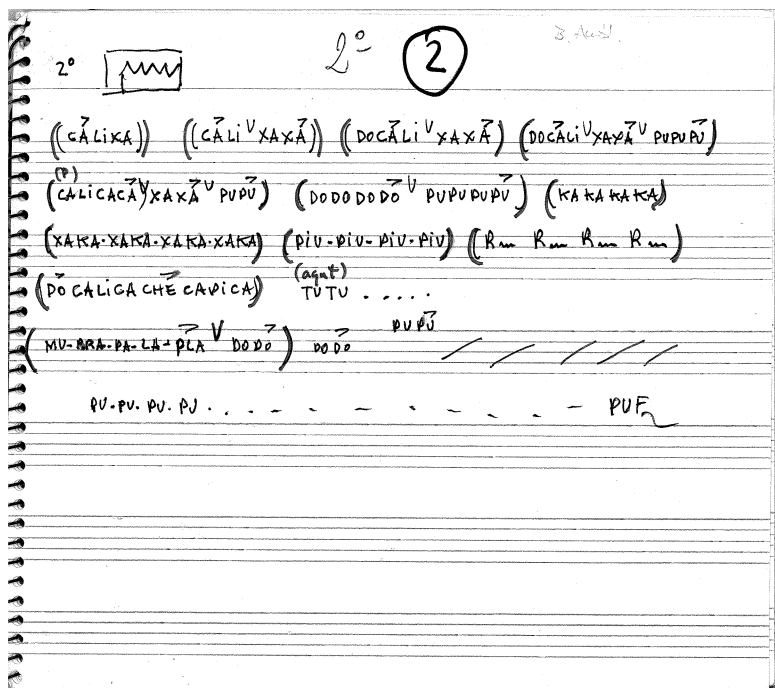 2º 2
2º
((CALIXA)) ((CALI V XAXA)) (DOCALI V XAXA) (DOCALI V XAXA V PUPUPU)
(P)
(CALICACA V XAXA V PUPU) (DODODODO V PUPUPUPU) (KAKAKAKA)
(XAKA-XAKA-XAKA-XAKA) (PIU-PIU-PIU-PIU) (Rm Rm Rm Rm)
(DO CALIGA CHE CAPICA) (agut) TUTU . . . . .
PUPU
(MU-BRA-PA-LA-PLA V DODO) DODO
PU.PU.PU.PU. . . - - - - - . - PUF